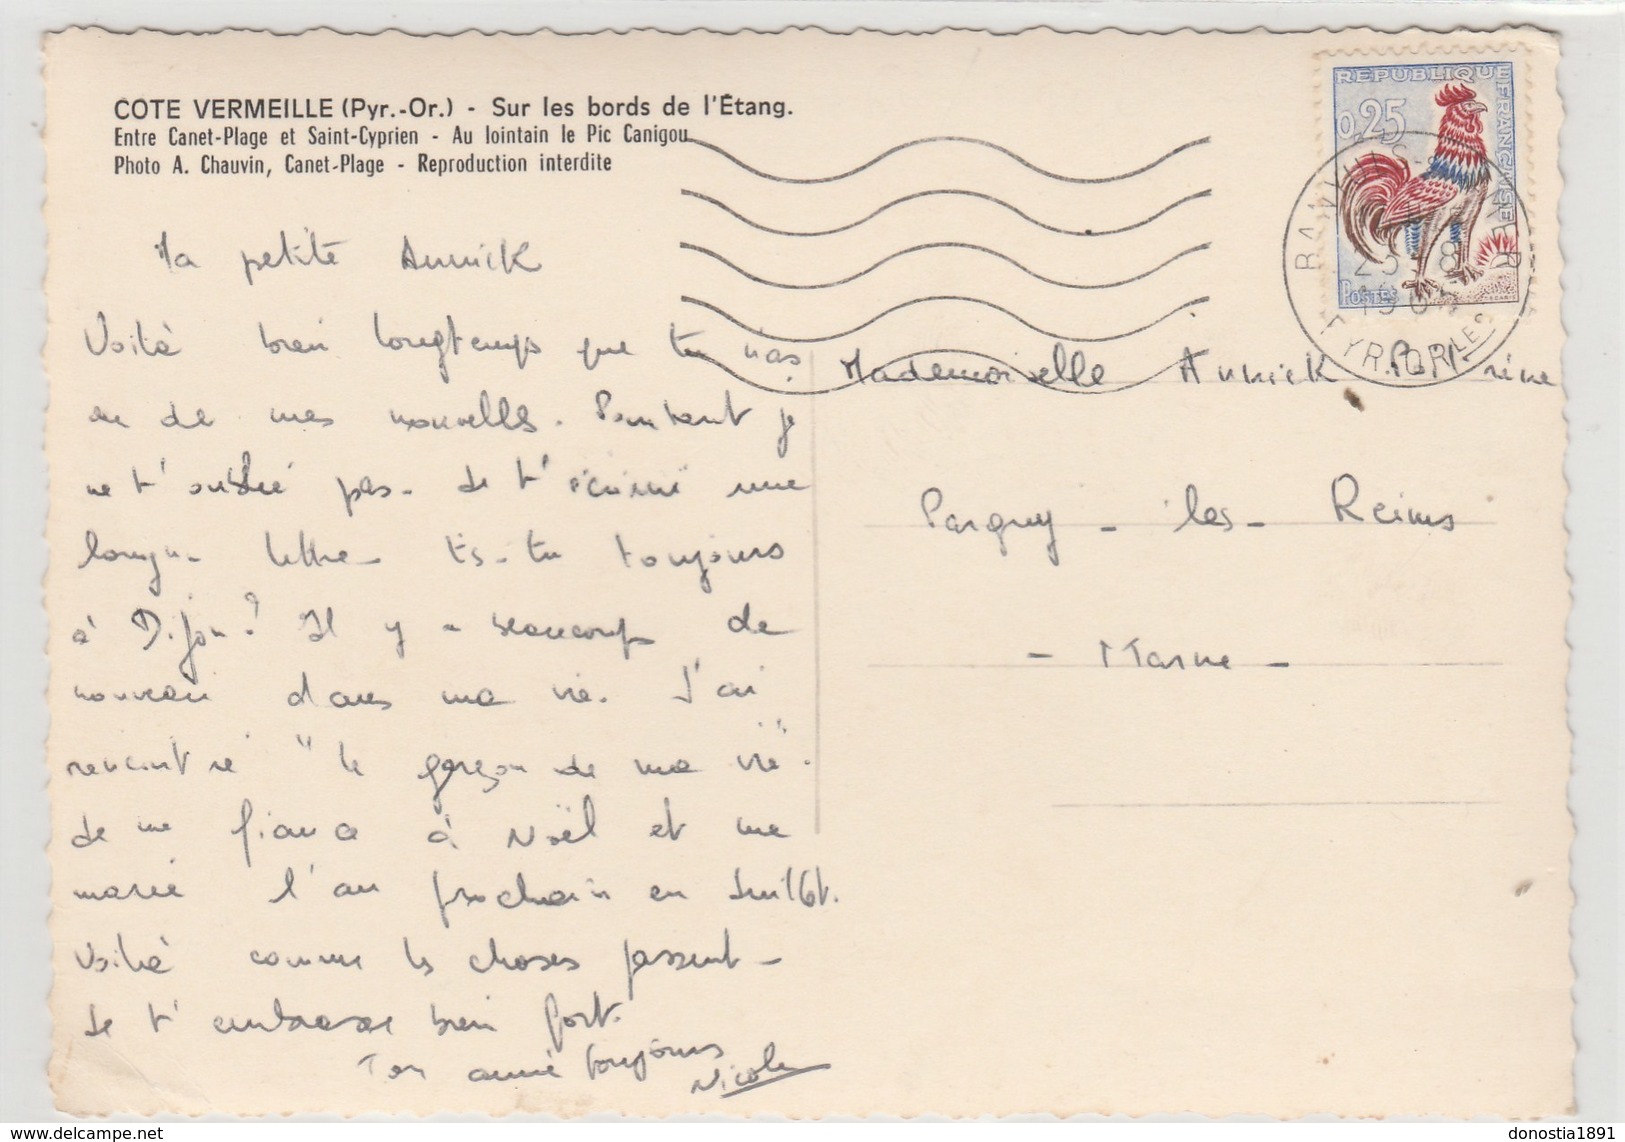 COTE VERMEILLE (Pyr.-Or.) - Sur les bords de l'Étang.
Entre Canet-Plage et Saint-Cyprien - Au lointain le Pic Canigou
Photo A. Chauvin, Canet-Plage - Reproduction interdite
REPUBLIQUE FRANÇAISE
0,25
POSTES
Ma petite Annick
Voilà bien longtemps que tu n'as
eu de mes nouvelles. Pourtant je
ne t'oublie pas. Je t'écrirai une
longue lettre. Es-tu toujours
à Dijon? Il y a beaucoup de
nouveau dans ma vie. J'ai
rencontré "le garçon de ma vie".
Je me fiance à Noël et me
marie l'an prochain en Juillet.
Voilà comme les choses passent -
Je t'embrasse bien fort.
Ton amie toujours
Nicole
Mademoiselle Annick
Pargny - les - Reims
- Marne -
donostia1891